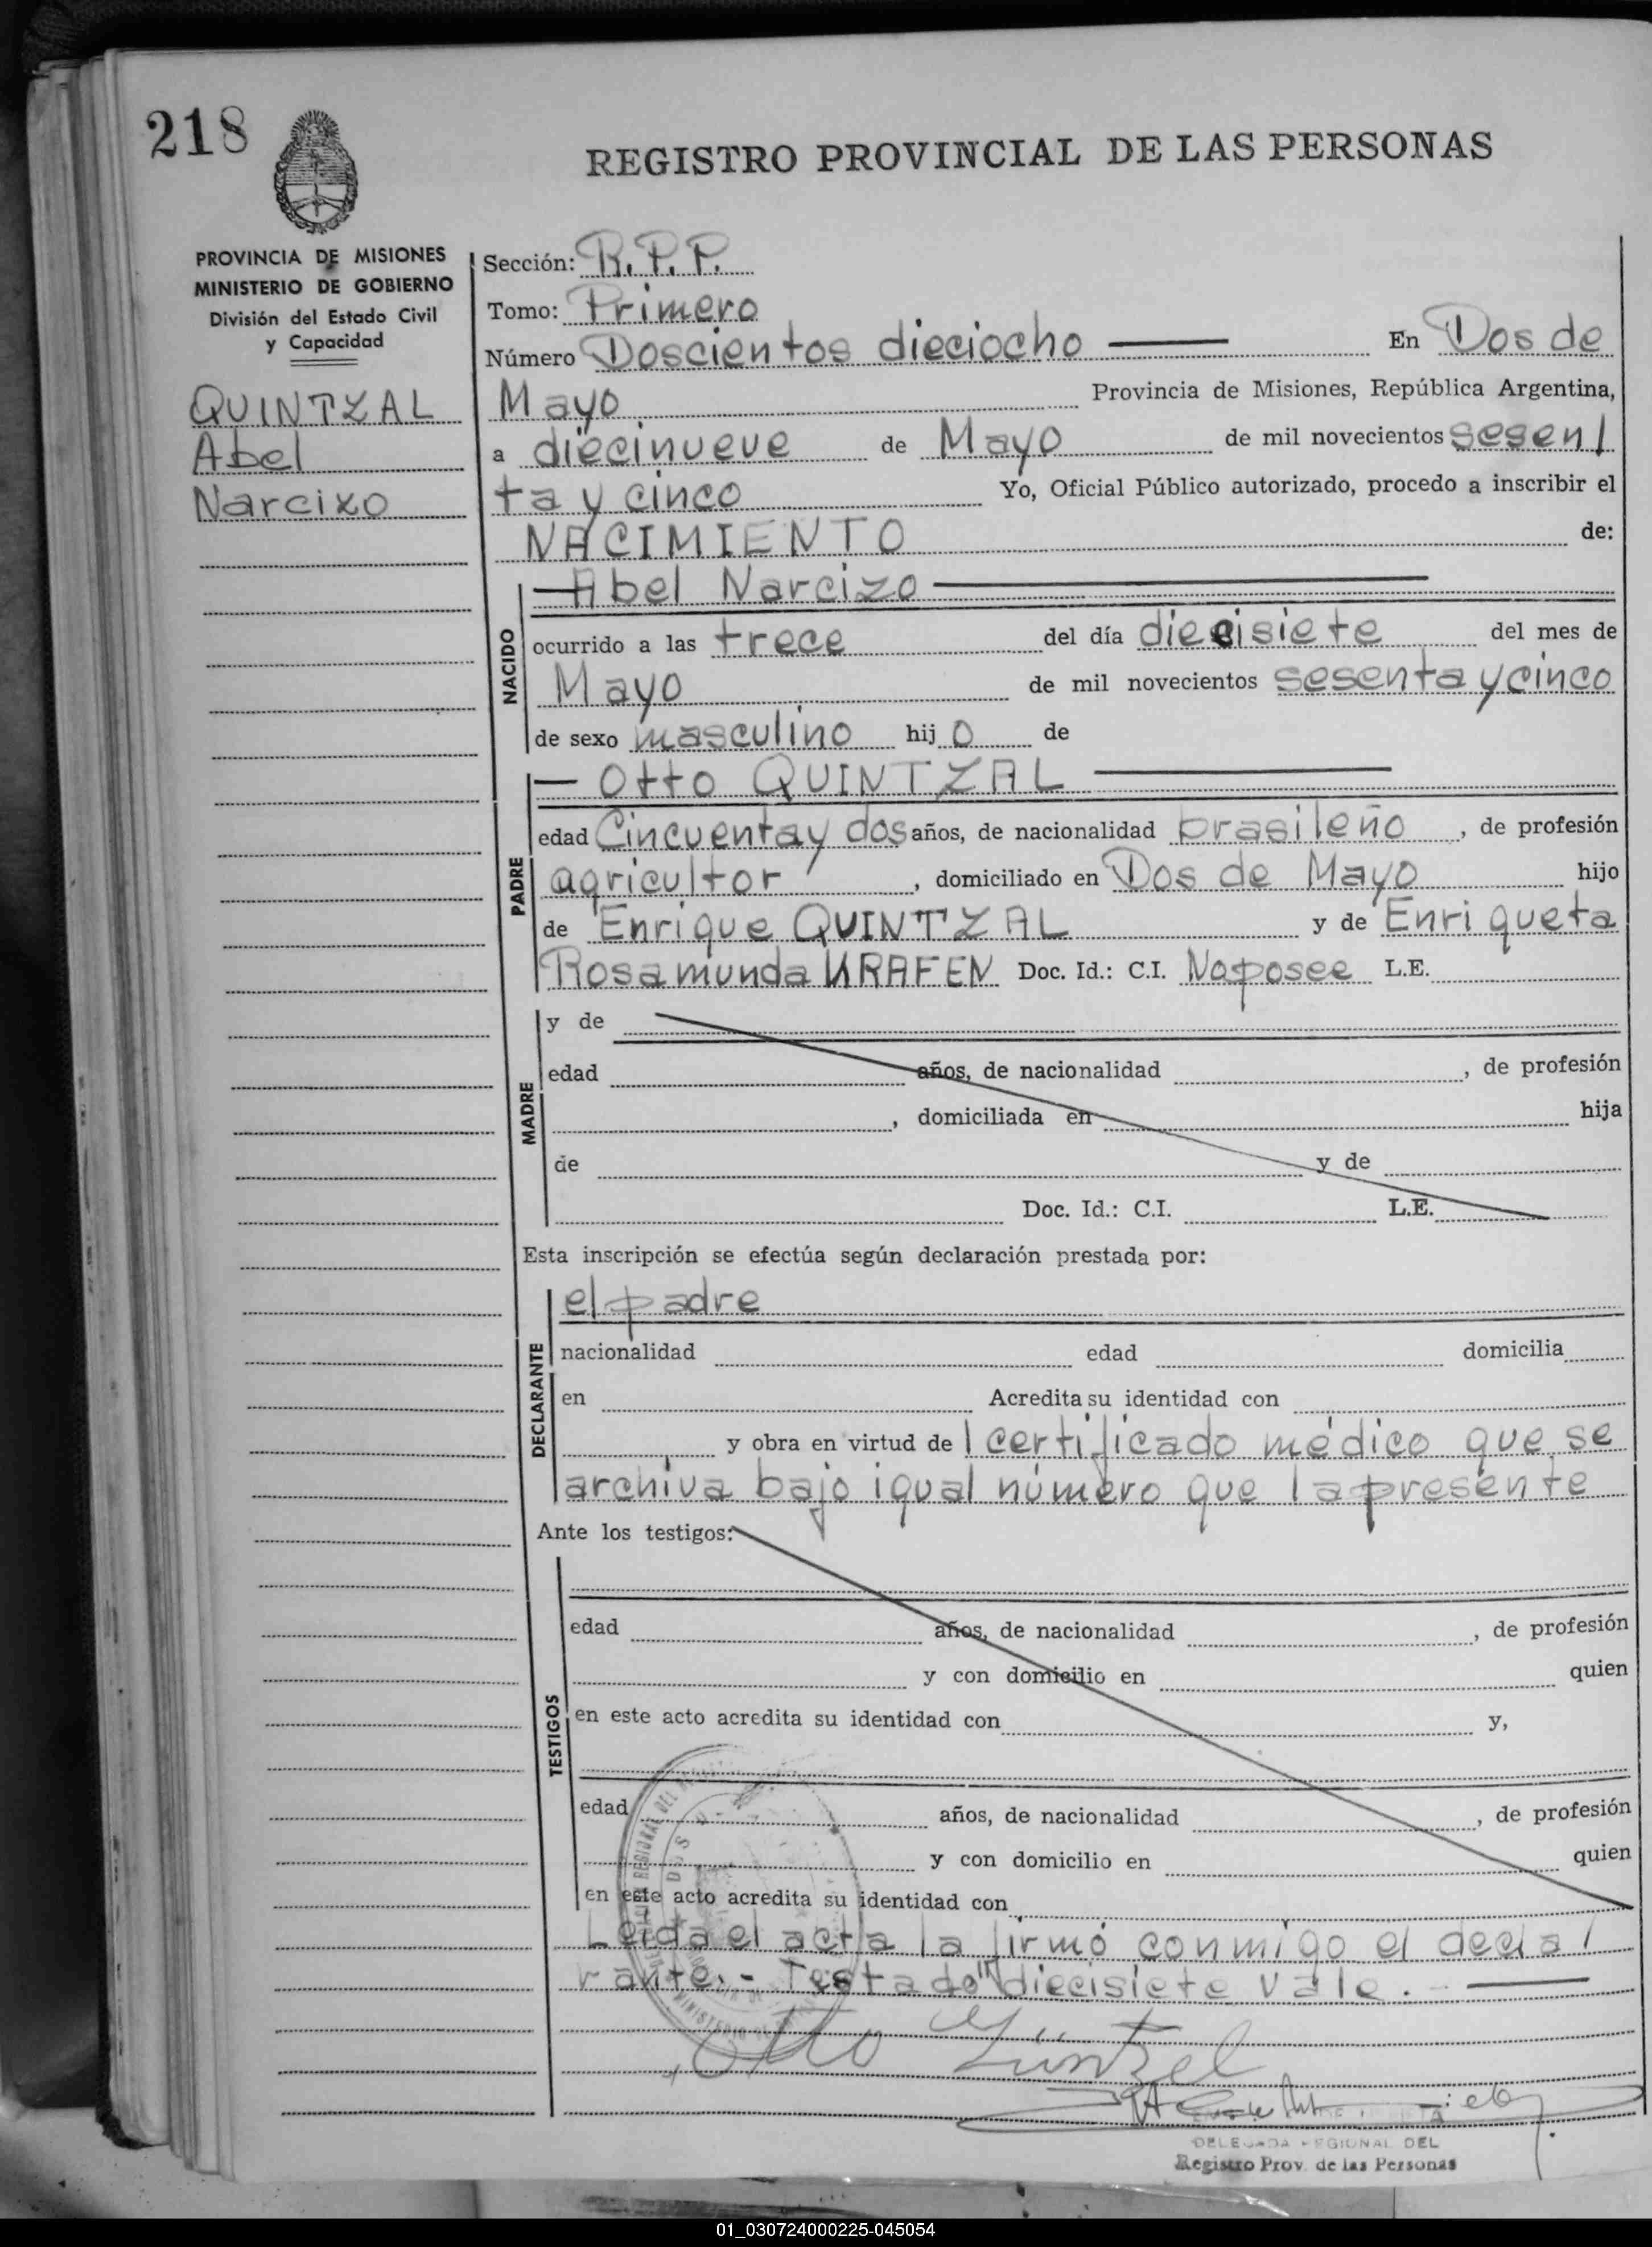 218
REGISTRO PROVINCIAL DE LAS PERSONAS
PROVINCIA DE MISIONES
MINISTERIO DE GOBIERNO
División del Estado Civil
y Capacidad
QUINTZAL
Abel
Narcizo
Sección: R.P.P.
Tomo: Primero
Número Doscientos dieciocho En Dos de
Mayo Provincia de Misiones, República Argentina,
a diecinueve de Mayo de mil novecientos sesen/
ta y cinco Yo, Oficial Público autorizado, procedo a inscribir el
NACIMIENTO de:
NACIDO
Abel Narcizo
ocurrido a las trece del día diecisiete del mes de
Mayo de mil novecientos sesenta y cinco
de sexo masculino hijo de
PADRE
Otto QUINTZAL
edad Cincuenta y dos años, de nacionalidad brasileño, de profesión
agricultor, domiciliado en Dos de Mayo hijo
de Enrique QUINTZAL y de Enriqueta
Rosamunda KRAFEN Doc. Id.: C.I. No posee L.E.
MADRE
y de
edad años, de nacionalidad , de profesión
, domiciliada en hija
de y de
Doc. Id.: C.I. L.E.
Esta inscripción se efectúa según declaración prestada por:
DECLARANTE
el padre
nacionalidad edad domicilia
en Acredita su identidad con
y obra en virtud de 1 certificado médico que se
archiva bajo igual número que la presente
Ante los testigos:
TESTIGOS
edad años, de nacionalidad , de profesión
y con domicilio en quien
en este acto acredita su identidad con y,
edad años, de nacionalidad , de profesión
y con domicilio en quien
en este acto acredita su identidad con
Leida el acta la firmó conmigo el decla/
rante.- Testado "diecisiete vale.-
Otto Güntzel
DELEGADA REGIONAL DEL
Registro Prov. de las Personas
01_030724000225-045054